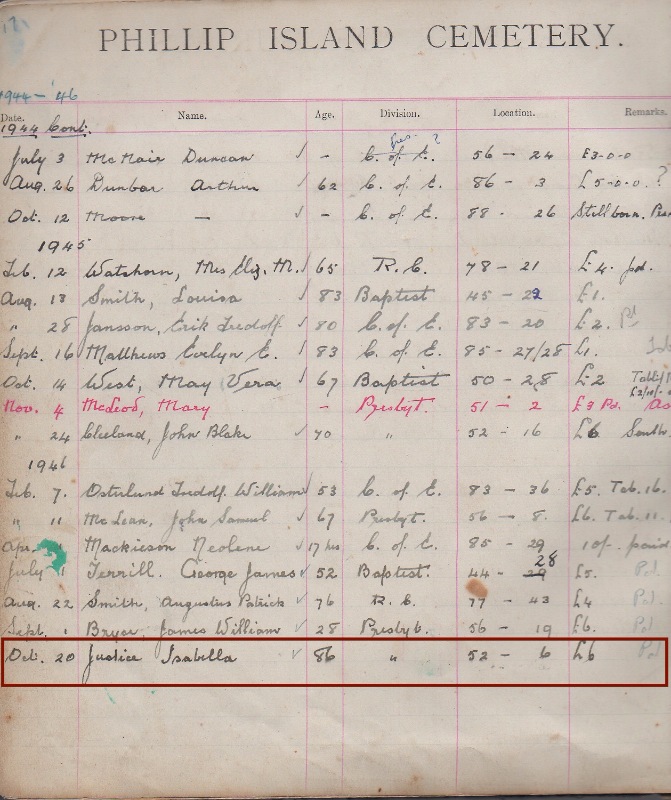 PHILLIP ISLAND CEMETERY.
1944 - '46
Date. Name. Age. Division. Location. Remarks.
1944 Cont.
Pres. ?
July 3 McNair Duncan ✓ - C. of E. 56 - 24 £3-0-0
Aug. 26 Dunbar Arthur ✓ 62 C. of E. 86 - 3 £5-0-0. ?
Oct. 12 Moore - ✓ - C. of E. 88 - 26 Stillborn.
1945
Feb. 12 Watshorn, Mrs Eliz. M. ✓ 65 R.C. 78 - 21 £4. pd.
Aug. 13 Smith, Louisa ✓ 83 Baptist 45 - 29 £1.
" 28 Jansson, Erik Fredolf ✓ 80 C. of E. 83 - 20 £2. Pd
Sept. 16 Matthews Evelyn E. ✓ 83 C. of E. 85 - 27/28 £1.
Oct. 14 West, May Vera ✓ 67 Baptist 50 - 28 £2
Nov. 4 McLeod, Mary - Presbyt. 51 - 2 £3 Pd.
" 24 Cleeland, John Blake ✓ 70 " 52 - 16 £6 South
1946
Feb. 7. Osterlund Fredolf. William ✓ 53 C. of E. 83 - 36 £5. Feb. 16.
" 11 McLean, John Samuel ✓ 67 Presbyt. 56 - 8. £6. Feb. 11.
Apr. Mackieson Neolene ✓ 17 hrs C. of E. 85 - 29 10/- paid
28
July 1 Terrill. George James ✓ 52 Baptist. 44 - 29 £5. Pd.
Aug. 22 Smith, Augustus Patrick ✓ 76 R.C. 77 - 43 £4 Pd
Sept. 1 Bryer, James William ✓ 28 Presbyt. 56 - 19 £6. Pd
Oct. 20 Justice Isabella ✓ 86 " 52 - 6 £6 Pd